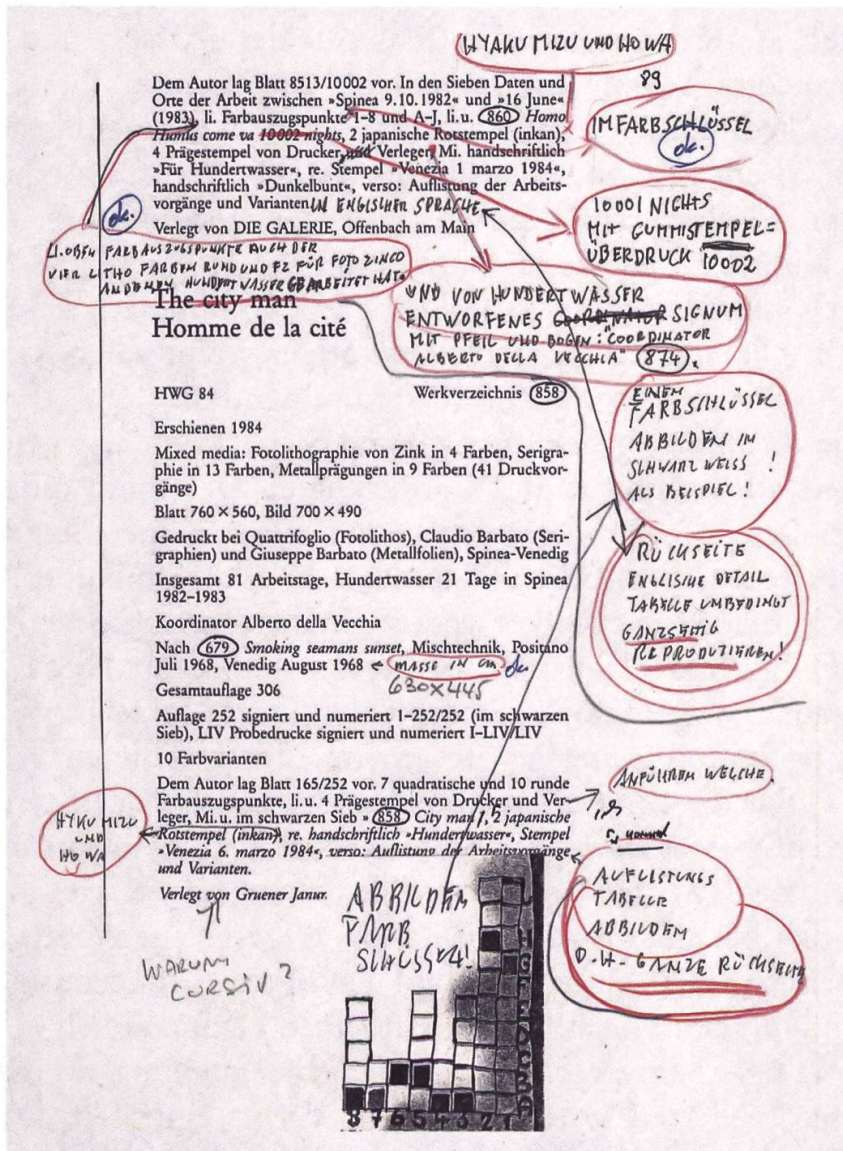 HYAKU MIZU UND HO WA
89
Dem Autor lag Blatt 8513/10002 vor. In den Sieben Daten und
Orte der Arbeit zwischen »Spinea 9.10.1982« und »16 June«
(1983), li. Farbauszugspunkte 1–8 und A–J, li. u. 860 Homo
Humus come va 10002 nights, 2 japanische Rotstempel (inkan),
4 Prägestempel von Drucker, und Verleger, Mi. handschriftlich
»Für Hundertwasser«, re. Stempel »Venezia 1 marzo 1984«,
handschriftlich »Dunkelbunt«, verso: Auflistung der Arbeits-
vorgänge und Varianten IN ENGLISCHER SPRACHE
Verlegt von DIE GALERIE, Offenbach am Main
IM FARBSCHLÜSSEL
ok.
10001 NIGHTS
MIT GUMMISTEMPEL=
ÜBERDRUCK 10002
ok.
LI. OBEN FARBAUSZUGSPUNKTE AUCH DER
VIER LITHO FARBEN RUND UND FZ FÜR FOTO ZINCO
AN DENEN HUNDERTWASSER GEARBEITET HAT.
UND VON HUNDERTWASSER
ENTWORFENES COORDINATOR SIGNUM
MIT PFEIL UND BOGEN: "COORDINATOR
ALBERTO DELLA VECCHIA" 874.
The city man
Homme de la cité
HWG 84 Werkverzeichnis 858
Erschienen 1984
Mixed media: Fotolithographie von Zink in 4 Farben, Serigra-
phie in 13 Farben, Metallprägungen in 9 Farben (41 Druckvor-
gänge)
Blatt 760 × 560, Bild 700 × 490
Gedruckt bei Quattrifoglio (Fotolithos), Claudio Barbato (Seri-
graphien) und Giuseppe Barbato (Metallfolien), Spinea-Venedig
Insgesamt 81 Arbeitstage, Hundertwasser 21 Tage in Spinea
1982–1983
Koordinator Alberto della Vecchia
Nach 679 Smoking seamans sunset, Mischtechnik, Positano
Juli 1968, Venedig August 1968 MASSE IN CM. ok.
630×445
Gesamtauflage 306
Auflage 252 signiert und numeriert 1–252/252 (im schwarzen
Sieb), LIV Probedrucke signiert und numeriert I–LIV/LIV
10 Farbvarianten
Dem Autor lag Blatt 165/252 vor. 7 quadratische und 10 runde
Farbauszugspunkte, li. u. 4 Prägestempel von Drucker und Ver-
leger, Mi. u. im schwarzen Sieb » 858 City man, 2 japanische
Rotstempel (inkan), re. handschriftlich »Hundertwasser«, Stempel
»Venezia 6. marzo 1984«, verso: Auflistung der Arbeitsvorgänge
und Varianten.
Verlegt von Gruener Janur.
EINEN
FARBSCHLÜSSEL
ABBILDEN IM
SCHWARZ WEISS !
ALS BEISPIEL !
RÜCKSEITE
ENGLISCHE DETAIL
TABELLE UMBEDINGT
GANZSEITIG
REPRODUZIEREN!
ANFÜHREN WELCHE.
normal
HYAKU MIZU
UND
HO WA
AUFLISTUNGS
TABELLE
ABBILDEN
D.H. GANZE RÜCKSEITE
WARUM
CURSIV?
ABBILDEN
FARB
SCHLÜSSEL!
J
I
H
G
F
E
D
C
B
A
8 7 6 5 4 3 2 1